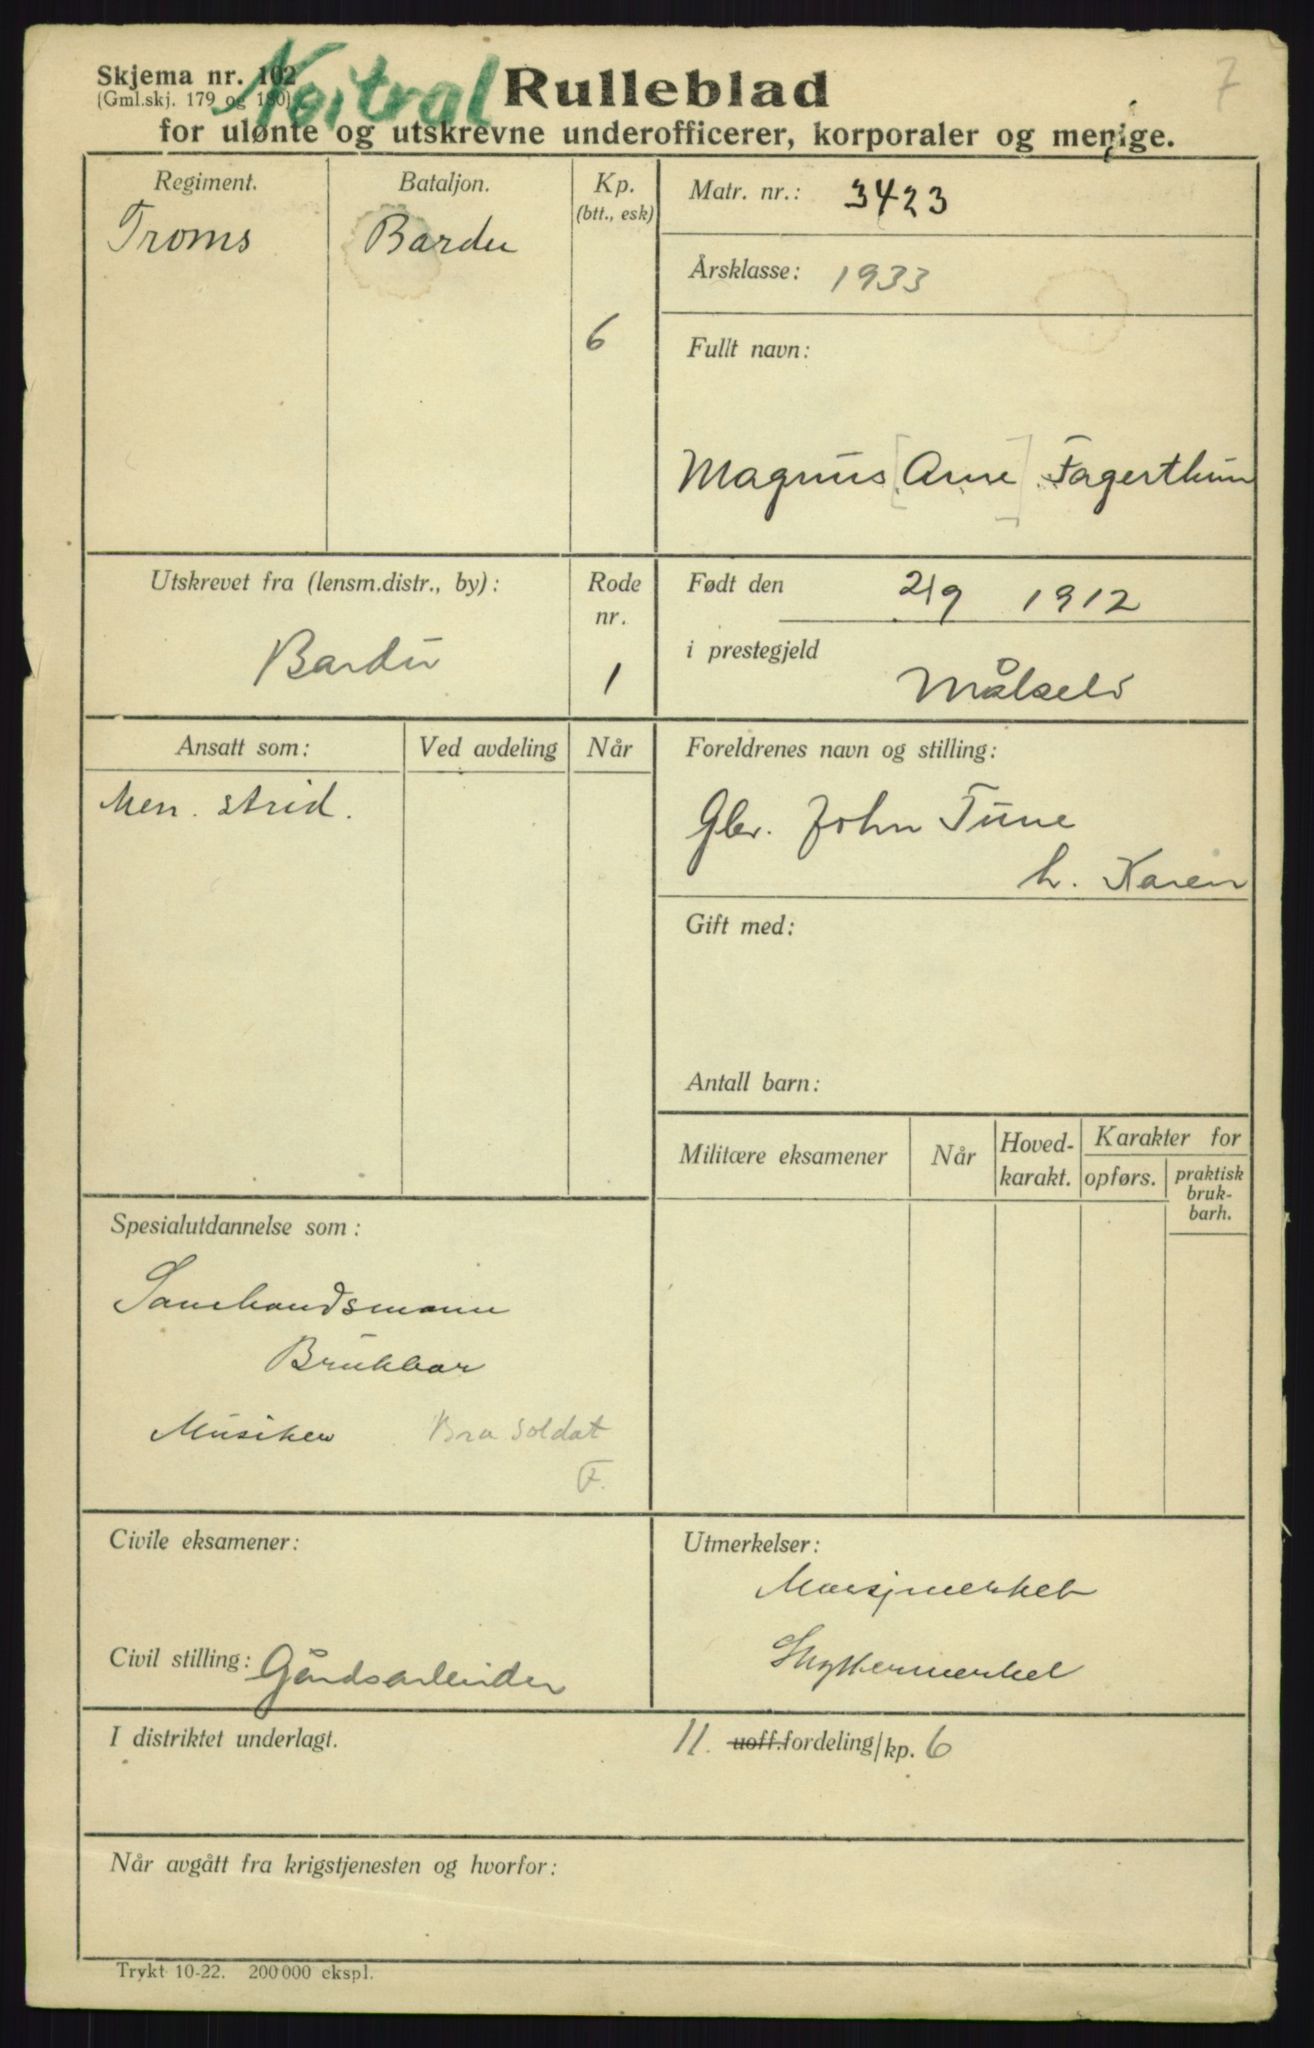 Nøitral
7
Skjema nr. 102
(Gml.skj. 179 og 180)
Rulleblad
for ulønte og utskrevne underofficerer, korporaler og menige.
Regiment.
Troms
Bataljon.
Bardu
Kp.
(btt., esk)
6
Matr. nr.: 3423
Årsklasse: 1933
Fullt navn:
Magnus [Arne] Fagerthun
Utskrevet fra (lensm.distr., by):
Bardu
Rode
nr.
1
Født den 2/9 1912
i prestegjeld
Målselv
Ansatt som:
Ved avdeling
Når
Men. strid.
Foreldrenes navn og stilling:
Gbr. John Tune
h. Karen
Gift med:
Antall barn:
Militære eksamener
Når
Hoved-
karakt.
Karakter for
opførs.
praktisk
bruk-
barh.
Spesialutdannelse som:
Sambandsmann
Brukbar
Musiker Bra soldat
F.
Civile eksamener:
Civil stilling: Gårdsarbeider
Utmerkelser:
Marsjmerket
Skyttermerket
I distriktet underlagt.
11. uoff.fordeling/kp. 6
Når avgått fra krigstjenesten og hvorfor:
Trykt 10-22. 200 000 ekspl.